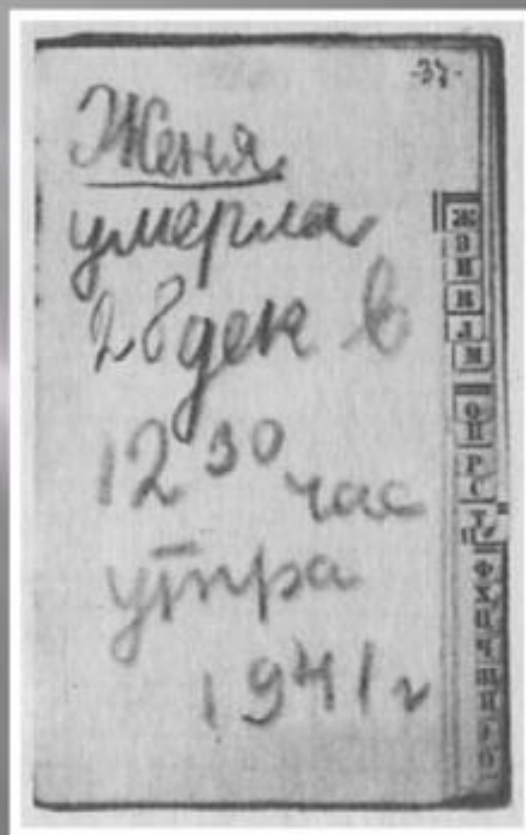 -37-
Женя
умерла
28 дек в
12 30 час
утра
1941 г
Ж
З
И
К
Л
М
О
П
Р
С
Т
У
Ф
Х
Ц
Ч
Ш